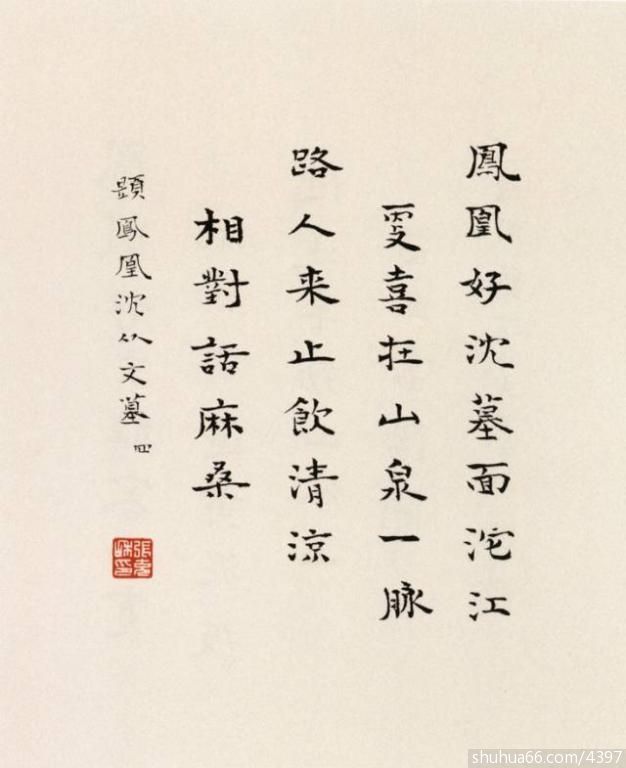 鳳凰好沈墓面沱江
更喜在山泉一脉
路人来止飲清涼
相對話麻桑
題鳳凰沈从文墓 四
張充和印
shuhua66.com/4397